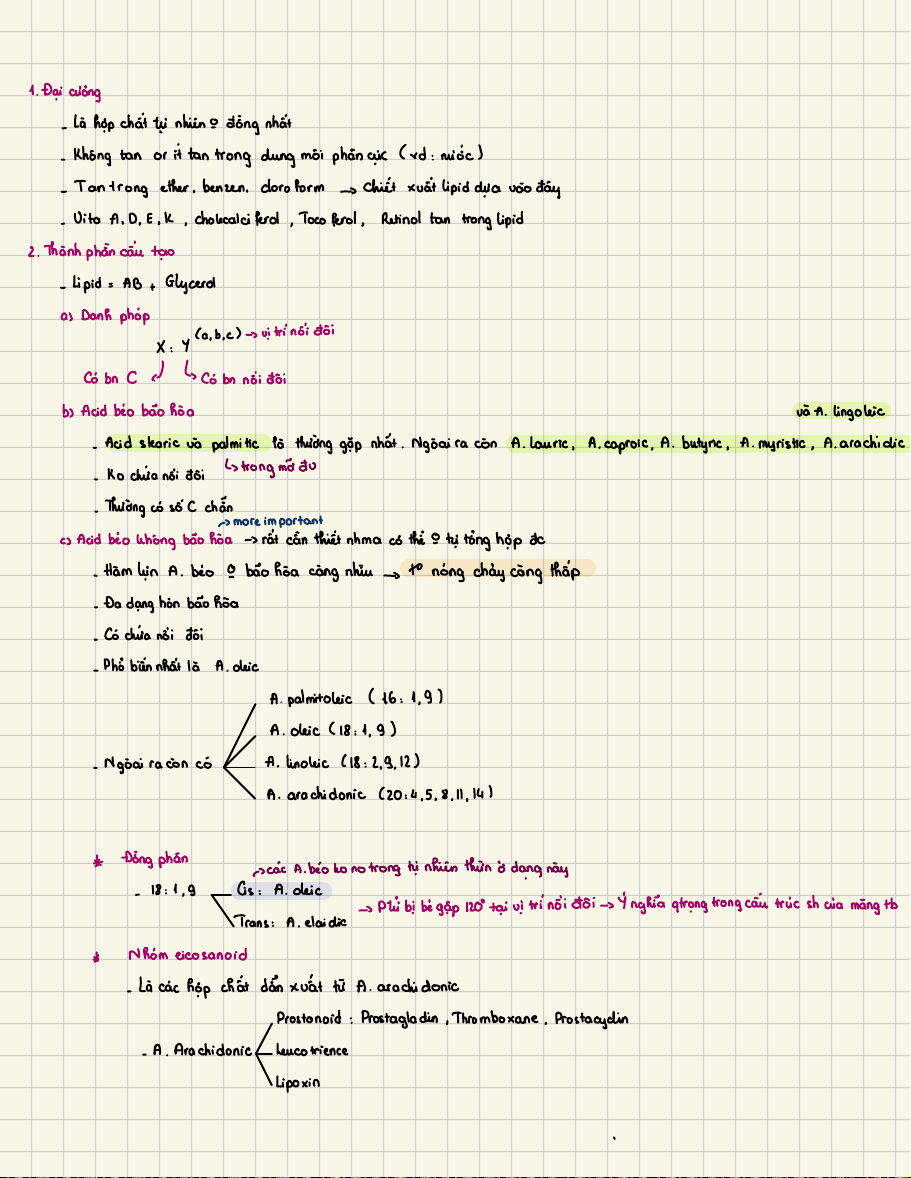 1. Đại cương
- Là hợp chất tự nhiên o đồng nhất
- Không tan or ít tan trong dung môi phân cực (vd: nước)
- Tan trong ether, benzen, cloroform → chiết xuất lipid dựa vào đây
- Vita A, D, E, K, cholecalciferol, Tocoferol, Retinol tan trong lipid
2. Thành phần cấu tạo
- Lipid = AB + Glycerol
a) Danh pháp
X : Y (a,b,c) → vị trí nối đôi
Có bn C
Có bn nối đôi
b) Acid béo bão hòa
và A. lingoleic
- Acid stearic và palmitic là thường gặp nhất. Ngoài ra còn A. lauric, A. caproic, A. butyric, A. myristic, A. arachidic
↳ trong mỡ đv
- Ko chứa nối đôi
- Thường có số C chẵn
→ more important
c) Acid béo không bão hòa → rất cần thiết nhma có thể o tự tổng hợp đc
- Hàm lựn A. béo o bão hòa càng nhìu → t° nóng chảy càng thấp
- Đa dạng hơn bão hòa
- Có chứa nối đôi
- Phổ biến nhất là A. oleic
- Ngoài ra còn có
A. palmitoleic (16: 1,9)
A. oleic (18: 1, 9)
A. linoleic (18: 2,9,12)
A. arachidonic (20: 4,5,8,11,14)
* Đồng phân
→ các A. béo ko no trong tự nhiên thừn ở dạng này
- 18: 1,9
Cis: A. oleic
Trans: A. elaidic
→ Ptử bị bẻ gập 120° tại vị trí nối đôi → Ý nghĩa qtrọng trong cấu trúc sh của màng tb
* Nhóm eicosanoid
- Là các hợp chất dẫn xuất từ A. arachidonic
- A. Arachidonic
Prostanoid: Prostagladin, Thromboxane, Prostacyclin
Leucotrience
Lipoxin